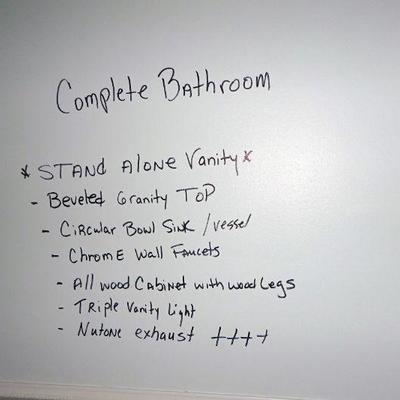 Complete Bathroom
* STAND Alone Vanity *
- Beveled Granity TOP
- Circular Bowl Sink / vessel
- Chrome Wall Faucets
- All wood Cabinet with wood Legs
- Triple Vanity Light
- Nutone exhaust ++++